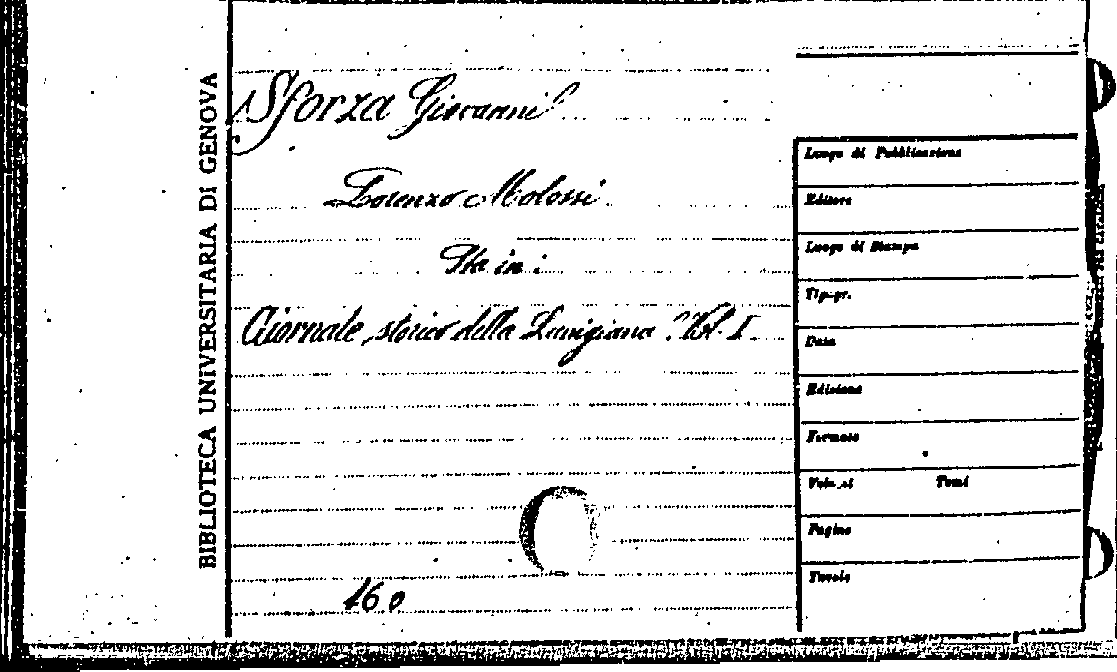 BIBLIOTECA UNIVERSITARIA DI GENOVA
Sforza Giovanni
Lorenzo Molossi
Sta in:
Giornale storico della Lunigiana Vol. I
16 o
Luogo di Pubblicazione
Editore
Luogo di Stampa
Tipogr.
Data
Edizione
Formato
Volumi Tomi
Pagine
Tavole